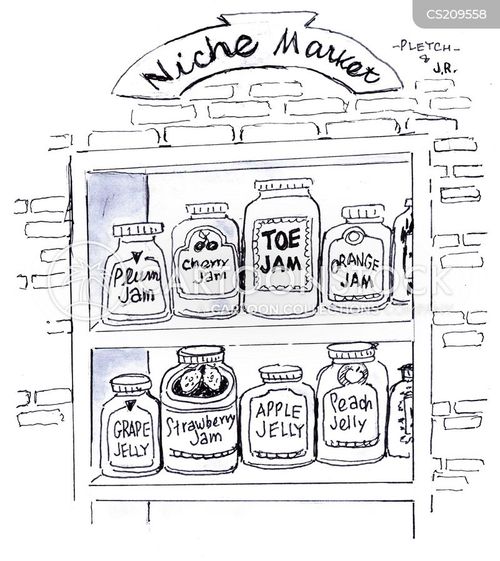 CS209558
Niche Market
-PLETCH-
&
J.R.
Plum
Jam
Cherry
Jam
TOE
JAM
ORANGE
JAM
CARTOONSTOCK
CARTOON COLLECTIONS
GRAPE
JELLY
Strawberry
Jam
APPLE
JELLY
Peach
Jelly